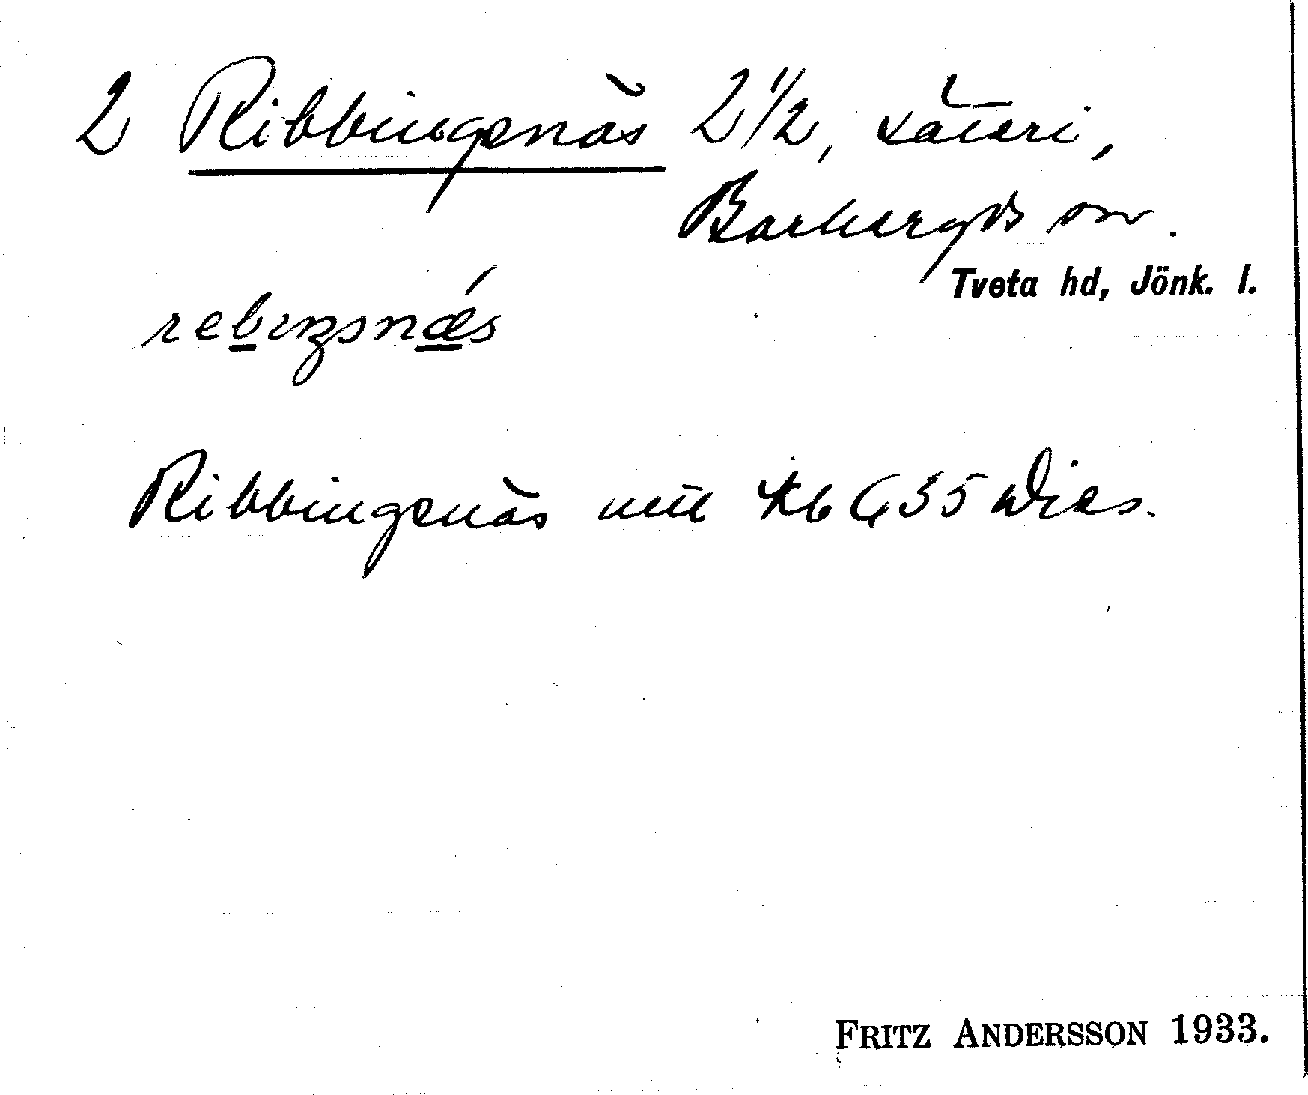 2 Ribbingsnäs 2 1/2, säteri,
Barkeryds sn.
Tveta hd, Jönk. l.
rebıŋsnǽs
Ribbingsnäs
FRITZ ANDERSSON 1933.